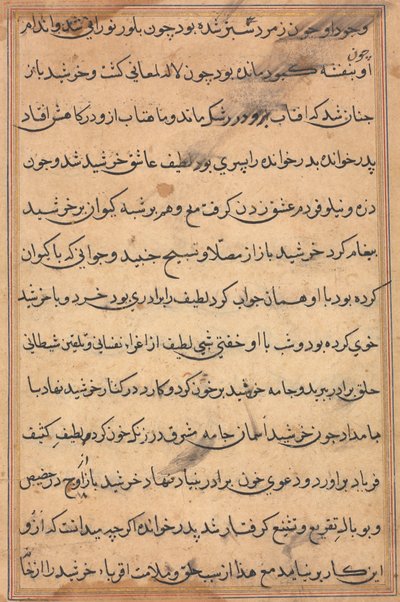 وجود او چون زمرد سبز شده بود چون بلور نورانی شد و اندام
چون
او بنفشه کبود مانده بود چون لاله لمعانی گشت و خرشید باز
چنان شد که آفتاب برو در رشک ماند و ماهتاب از و در کاهش افتاد
پدرخوانده بدرخوانده را پسری بود لطیف عاشق خرشید شد و چون
ذره و نیلوفر دم عشق زدن گرفت مع و هر شبه کیوان بر خرشید
پیغام کرد خرشید باز از مصلا و تسبیح جنبید و جوابی که با کیوان
کرده بود با او همان جواب کرد لطیف را برادری بود خرد و با خرشید
خوی کرده بود و شب با او خفتی شبی لطیف از اغراء نفسانی و تلقین شیطانی
حلق برادر ببرید و جامه خرشید پر خون کرد و کارد در کنار خرشید نهاد با
جامداد چون خرشید آسمان جامه مشرق در رنگ خون کرد لطیف کثیف
فریاد برآورد و دعوی خون برادر بنیاد نهاد خرشید باز از اوج در حضیض
و بوباله تقریع و تشنیع گرفتار شد پدرخوانده اگرچه میدانست که از و
این کار بر نیاید مع هذا از سبب خلق و ملامت اقرباء خرشید را از خا